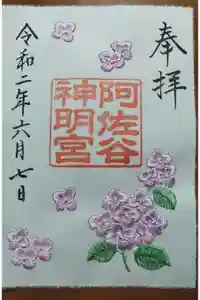 奉拝
阿佐谷
神明宮
令和二年六月七日